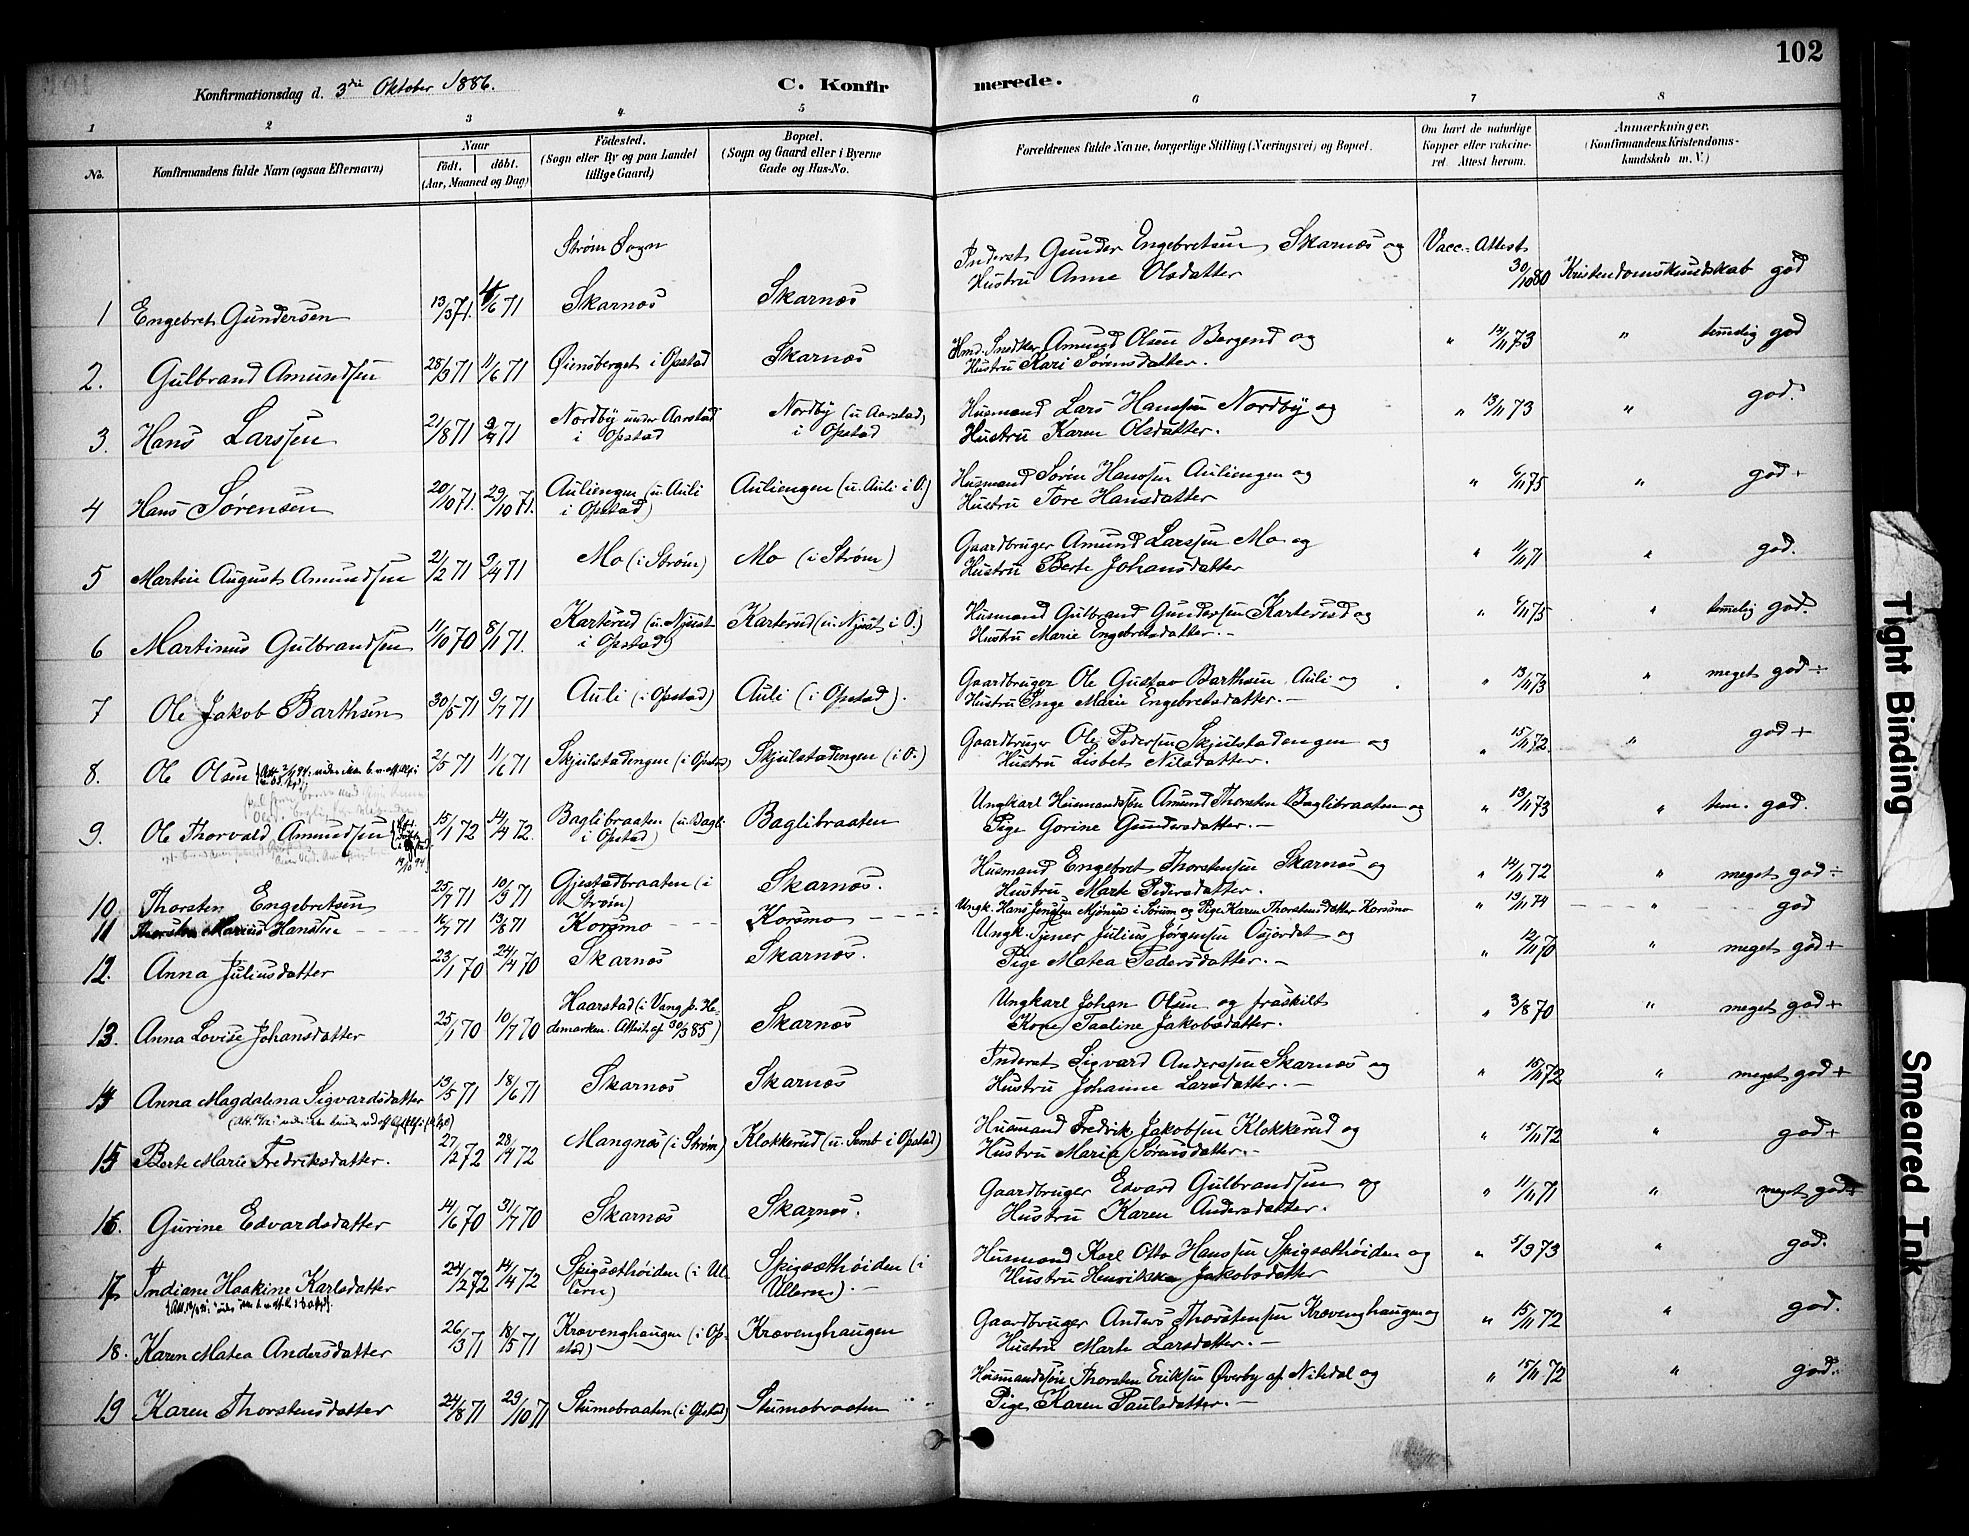 102
Konfirmationsdag d. 3die Oktober 1886.
C. Konfirmerede.
1 2 3 4 5 6 7 8
No.
Konfirmandens fulde Navn (ogsaa Efternavn)
Naar
Födt. döbt.
(Aar, Maaned og Dag)
Födested.
(Sogn eller By og paa Landet tillige Gaard)
Bopæl.
(Sogn og Gaard eller i Byerne Gade og Hus-No.
Forældrenes fulde Navne, borgerlige Stilling (Næringsvei) og Bopæl.
Om havt de naturlige Kopper eller vaccineret. Attest herom.
Anmærkninger.
(Konfirmandens Kristendomskundskab m. V.)
Strøm Sogn
1 Engebret Gundersen 13/3 71. 4/6 71 Skarnæs Skarnæs Inderst Gunder Engebretsen Skarnæs og
Hustru Anne Olsdatter Vacc. Attest 30/10 80 Kristendomskundskab god
2. Gulbrand Amundsen 28/3 71 11/6 71 Øiensberget i Opstad Skarnæs Hmd. Snedker Amund Olsen Bergend og
Hustru Kari Sørensdatter. " 14/11 73 " temmelig god
3. Hans Larssen 21/8 71 71 Nordby under Aarstad i Opstad Nordby (u. Aarstad) i Opstad Husmand Lars Hanssen Nordby og
Hustru Karen Olsdatter. " 13/11 73 " god.
4 Hans Sørensen 20/10 71. 29/10 71. Auliengen (u. Auli i Opstad) Auliengen (u. Auli i O.) Husmand Søren Hanssen Auliengen og
Hustru Tore Hansdatter " 6/11 75 " god+
5 Martin August Amundsen 21/2 71 9/4 71 Mo (i Strøm) Mo (i Strøm) Gaardbruger Amund Larssen Mo og
Hustru Berte Johansdatter " 11/11 71 " god.
6 Martinus Gulbrandsen 11/10 70 8/1 71. Karterud (u. Njust i Opstad) Karterud (u. Njust i O.) Husmand Gulbrand Gundersen Karterud og
Hustru Marie Engebretsdatter.- " 6/11 75 " temmelig god.
7 Ole Jakob Barthsen 30/5 71 9/7 71 Auli (i Opstad) Auli (i Opstad). Gaardbruger Ole Gustav Barthsen Auli og
Hustru Inge Marie Engebretsdatter.- " 13/11 73 " meget god÷
8. Ole Olsen 2/5 71 11/6 71 Skjulstadengen (i Opstad) Skjulstadengen (i O.) Gaardbruger Ole Pedersen Skjulstadengen og
Hustru Lisbet Nilsdatter. " 15/11 72 " god+
9. Ole Thorvald Amundsen 15/1 72 14/4 72. Baglibraaten (u. Bagli i Opstad) Baglibraaten Ungkarl Husmandssøn Amund Thorsten Baglibraaten og
Pige Gorine Gundersdatter.- " 13/11 73 " tem. god.
10 Thorsten Engebretsen 25/7 71 10/9 71 Gjestadbraaten (i Strøm) Skarnæs. Husmand Engebret Thorstensen Skarnæs og
Hustru Marte Pedersdatter. " 14/11 72 " meget god÷
11 Marius Hanssen 16/7 71 13/8 71 Korsmo Korsmo Ungk. Hans Jenssen i Sørum og Pige Karen Thorstensdatter Korsmo " 19/11 74 " god
12. Anna Juliusdatter 23/1 70 24/4 70 Skarnæs Skarnæs. Ungk. Tjener Julius Jørgensen Osjordet og
Pige Matea Pedersdatter.- " 12/11 70 " meget god+
13. Anna Lovise Johansdatter 25/1 70 10/7 70 Haarstad (i Vang p. Hedemarken. Attest af 30/3 85) Skarnæs Ungkarl Johan Olsen og fraskilt
Kone Paaline Jakobsdatter. " 3/8 70 " meget god+
14 Anna Magdalena Sigvardsdatter 13/5 71 18/6 71 Skarnæs Skarnæs Inderst Sigvard Anderssen Skarnæs og
Hustru Johanne Larsdatter.- " 15/11 72 " meget god+
15 Berte Marie Fredriksdatter. 27/2 72 28/4 72 Mangnæs (i Strøm) Klokkerud (u. Semb i Opstad) Husmand Fredrik Jakobsen Klokkerud og
Hustru Maria Sørensdatter.- " 15/11 72 " god+
16. Gurine Edvardsdatter 14/6 70 31/7 70 Skarnæs Skarnæs. Gaardbruger Edvard Gulbrandsen og
Hustru Karen Andersdatter. " 11/11 71 " meget god+
17. Indiane Haakine Karlsdatter 24/2 72 14/4 72 Spigsæthøiden (i Ullern) Spigsæthøiden (i Ullern). Husmand Karl Otto Hanssen Spigsæthøiden og
Hustru Henrikke Jakobsdatter " 5/9 73 " god.
18. Karen Matea Andersdatter 26/3 71 18/5 71 Krævenghaugen (i Opstad) Krævenghaugen Gaardbruger Anders Thorstensen Krævenghaugen og
Hustru Marte Larsdatter.- " 15/11 72 " god.
19 Karen Thorstensdatter 24/8 71 29/10 71 Stumobraaten (i Opstad) Stumobraaten Husmandssøn Thorsten Eriksen Øverby af Nitedal og
Pige Karen Paulsdatter.- " 15/11 72 " god÷
Tight Binding
Smeared Ink